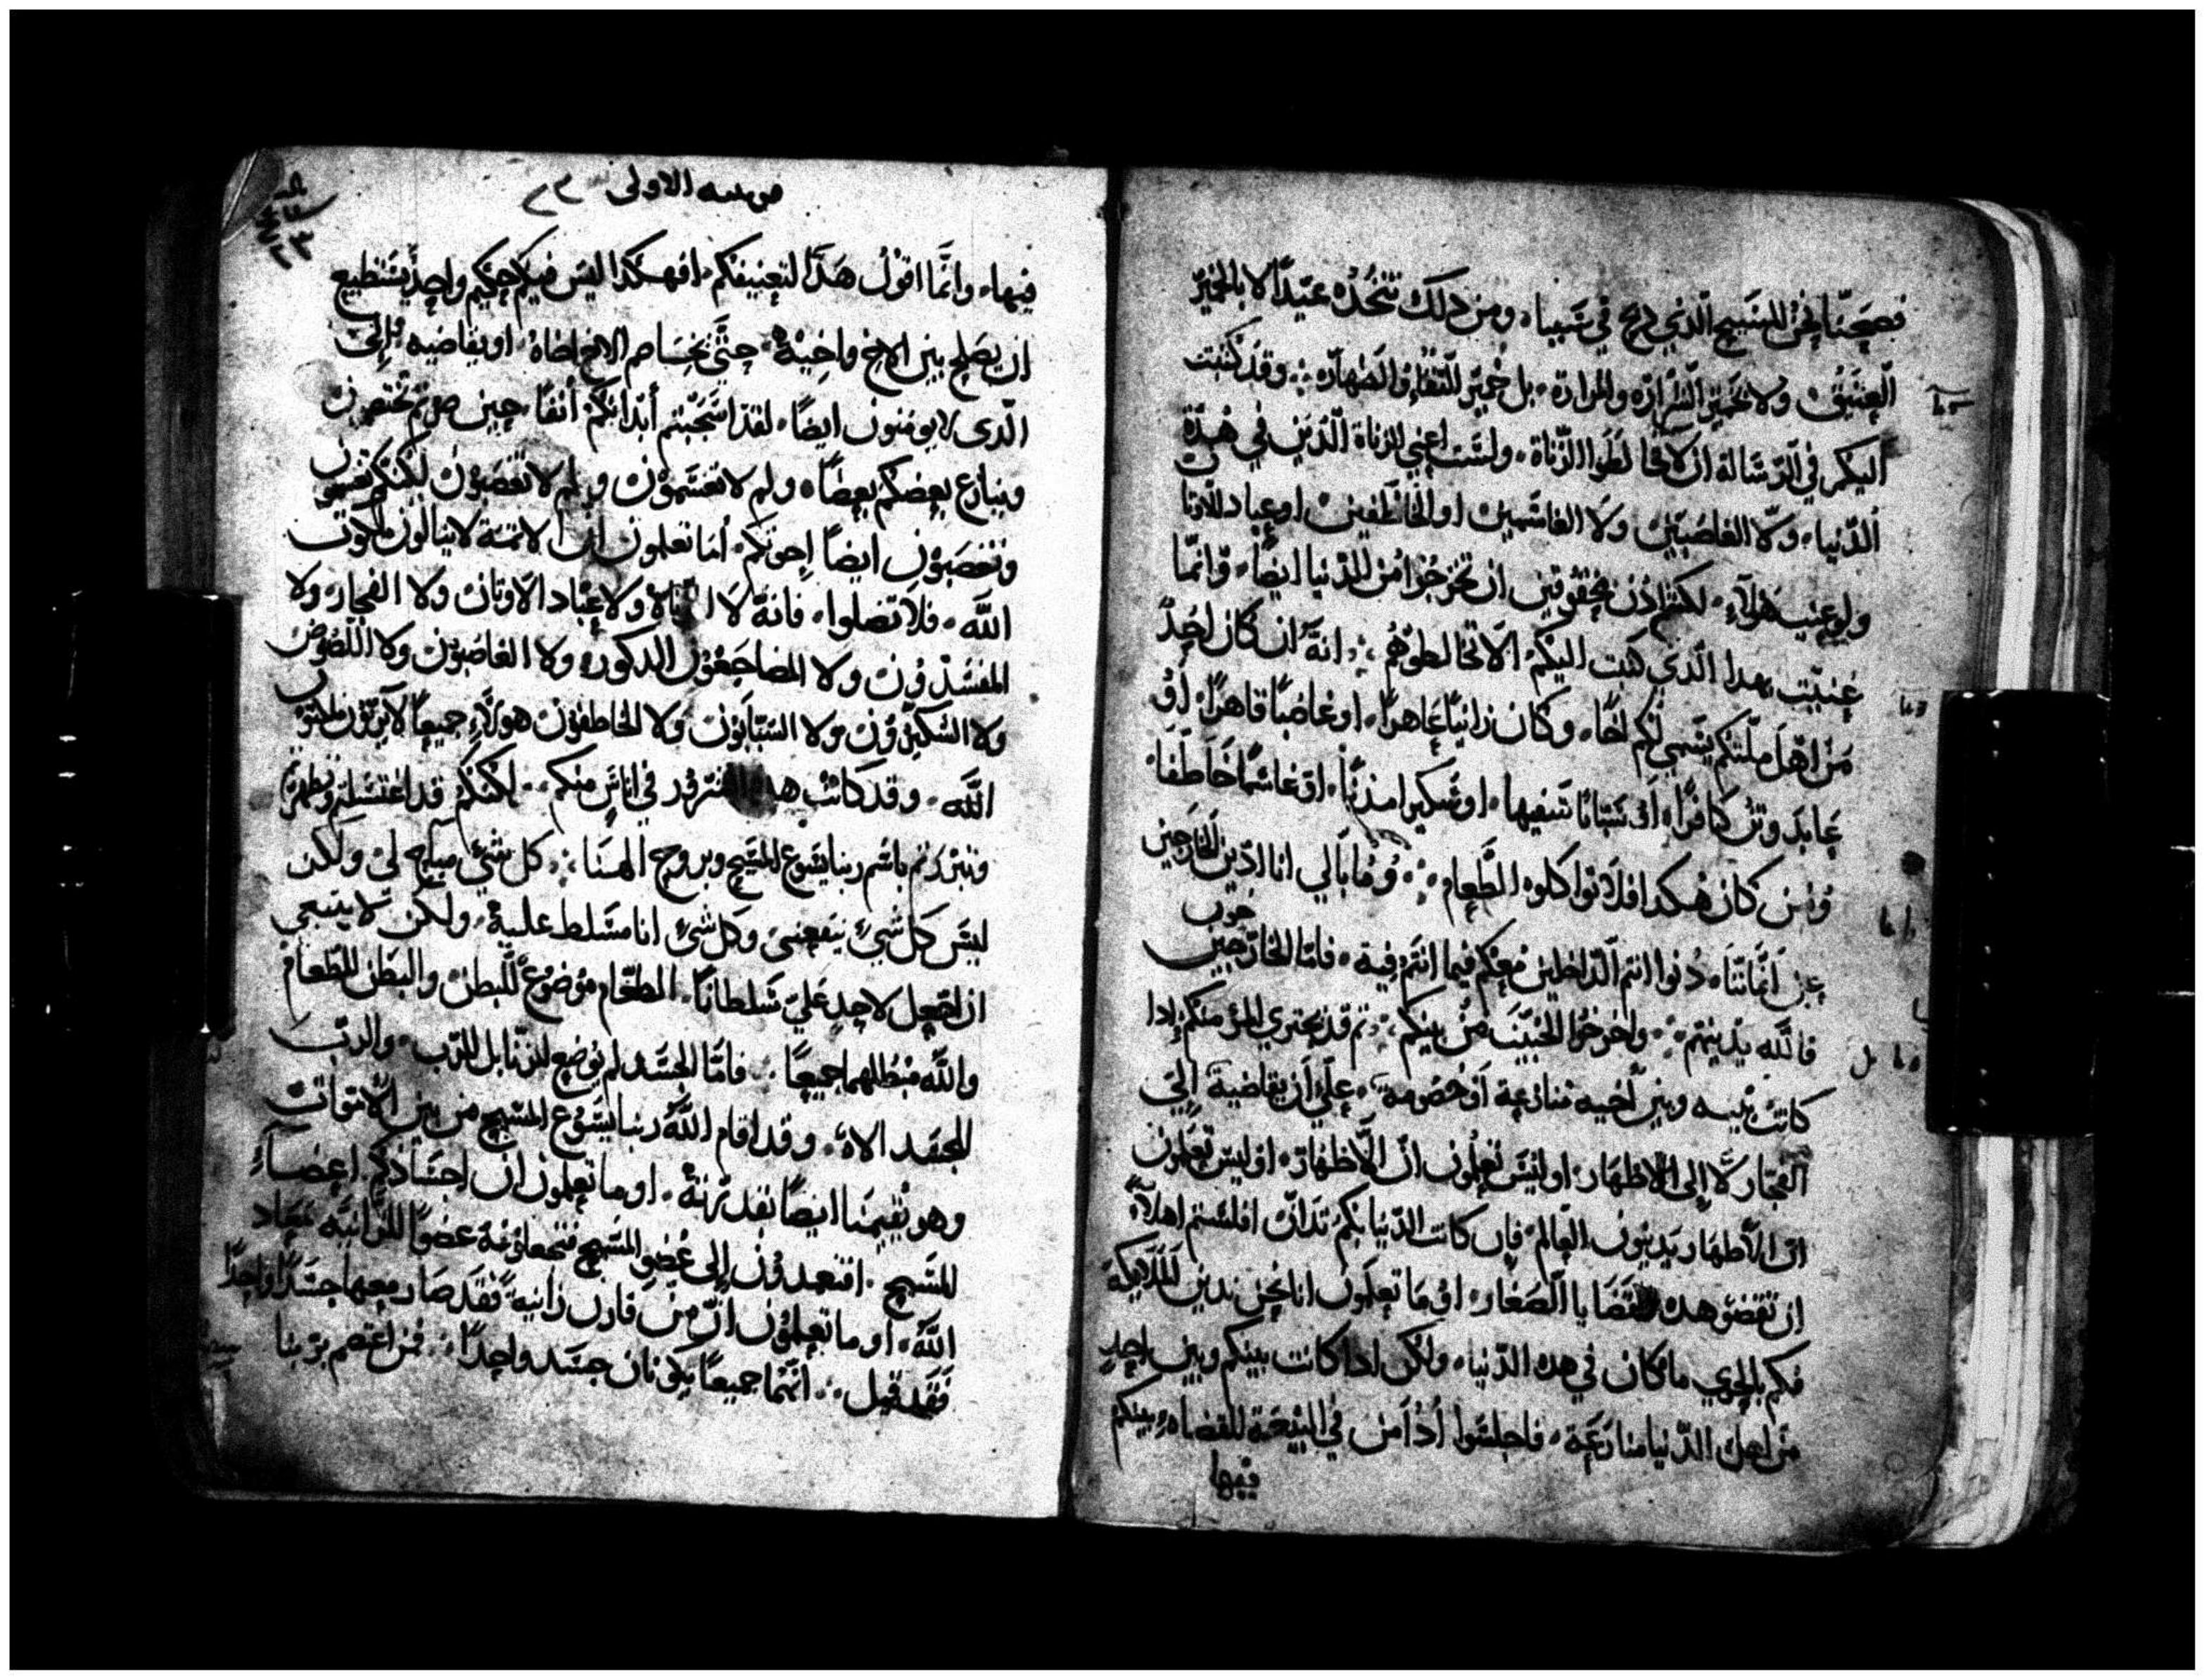 فصحنا نحن المسيح الذي ذبح في سببنا ومن ذلك نتخذه عيدًا لا بالخمير
العتيق ولا بخمير الشرارة والمرارة بل خمير النقاء والطهارة وقد كتبت
اليكم في الرسالة ان لا تخالطوا الزناة ولست اعني الزناة الذين في هذه
الدنيا ولا الغاصبين ولا الغاشمين او الخاطفين او عباد الاوثان
ولو عنيت هولاء لكنتم اذن محقوقين ان تخرجوا من الدنيا ايضًا وانما
عنيت بهدا الذي كتبت اليكم الا تخالطوهم انه ان كان احد
من اهل ملتكم يسمي لكم اخًا وكان زانيًا عاهرًا او غاصبًا قاهرًا او
عابد وثن كافرًا او سبابًا سفيها او سكيرا او غاشمًا خاطفا
ومن كان هكدا فلا تواكلوه الطعام وما بالي انا ادين الخارجين
عن دنوا انتم الداخلين معكم فيما انتم فيه فاما الخارجين
فالله يدينهم واخرجوا الخبيث من بينكم ثم قد يجتري المرؤ منكم إدا
كانت بينه وبين أخيه منازعة أو خصومة على أن يقاضيه إلى
الفجار لا إلى الاطهار اوليس تعلمون ان الاطهار اوليس تعلمون
ان الاطهار يدينون العالم فإن كانت الدنيا بكم تدان افلستم اهلًا
ان تقضوا هده القضايا الصغار او ما تعلمون انا نحن ندين الملايكة
فكم بالحري ما كان في هده الدنيا ولكن ادا كانت بينكم وبين احد
من اهل الدنيا منازعة فاجلسوا في البيعة للقضاء بينكم
فيها
الاولى
فيها وانما اقول هدا لتعنيفكم افهكدا ليس فيكم حكيم واحد يستطيع
ان يصلح بين الاخ واخيه حتى يخاصم الاخ اخاه او يقاضيه إلى
الدي لا يومنون ايضًا لقد اشجبتم أبدانكم أنفًا حين صرتم تختصمون
وينازع بعضكم بعضًا ولم لا تغشمون ولم لا تغصبون لكنكم تغشمون
وتغصبون ايضًا إخوتكم أما تعلمون ان الاتمة لا ينالون ملكوت
الله فلا تضلوا فانه لا الزناة ولا عباد الاوتان ولا الفجار ولا
المفسدون ولا المضاجعون الدكور ولا الغاصبون ولا اللصوص
ولا السكيرون ولا السبابون ولا الخاطفون هولاء جميعًا لا يرثون ملكوت
الله وقد كانت هده في اناس منكم لكنكم قد اغتسلتم وتطهرتم
وتبررتم باسم ربنا يسوع المسيح وبروح الهنا كل شيء مباح لي ولكن
ليس كل شيء ينفعني وكل شيء انا مسلط عليه ولكن لا ينبغي
ان اجعل لاحد علي سلطانًا الطعام موضوع للبطن والبطن للطعام
والله مبطلهما جميعًا فاما الجسد لم يوضع للزنا بل للرب والرب
للجسد وقد اقام الله ربنا يسوع المسيح من بين الاموات
وهو يقيمنا ايضًا بقدرته او ما تعلمون ان اجسادكم اعضاء
المسيح افتعمدون إلى عضو المسيح فتجعلونه عضوًا للزانية معاد
الله او ما تعلمون ان من قارن زانية فقد صار معها جسدًا واحدًا
فقد قيل انهما جميعًا يكونان جسد واحدًا فمن اعتصم بربنا